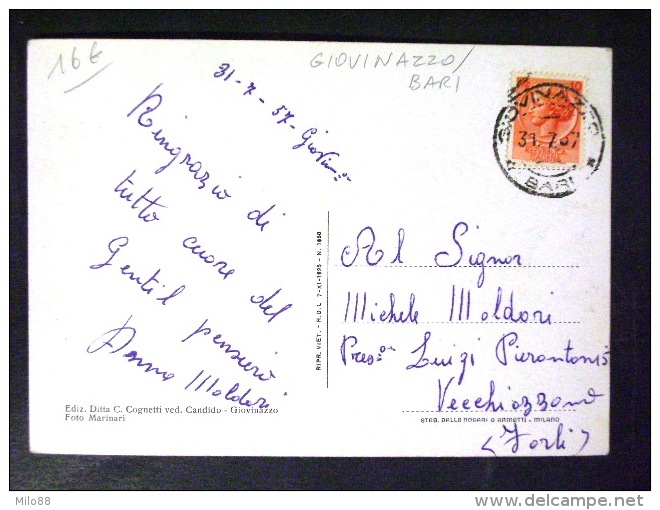 16 €
GIOVINAZZO/
BARI
31-7-57-Giovin.
Ringrazio di
tutto cuore del
Gentil pensiero
Anna Maldori
GIOVINAZZO
31.7.57
BARI
Al Signor
Michele Maldori
Presso Luigi Pierantoni
Vecchiazzano
(Forlì)
RIPR. VIET. - R.D.L. 7-XI-1925 - N. 1950
Ediz. Ditta C. Cognetti ved. Candido - Giovinazzo
Foto Marinari
STAB. DALLE NOGARE E ARMETTI - MILANO
Milo88
delcampe.net